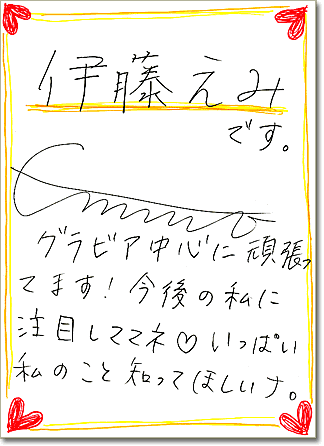 伊藤えみ
です。
グラビア中心に頑張っ
てます！今後の私に
注目しててネ♡いっぱい
私のこと知ってほしいナ。